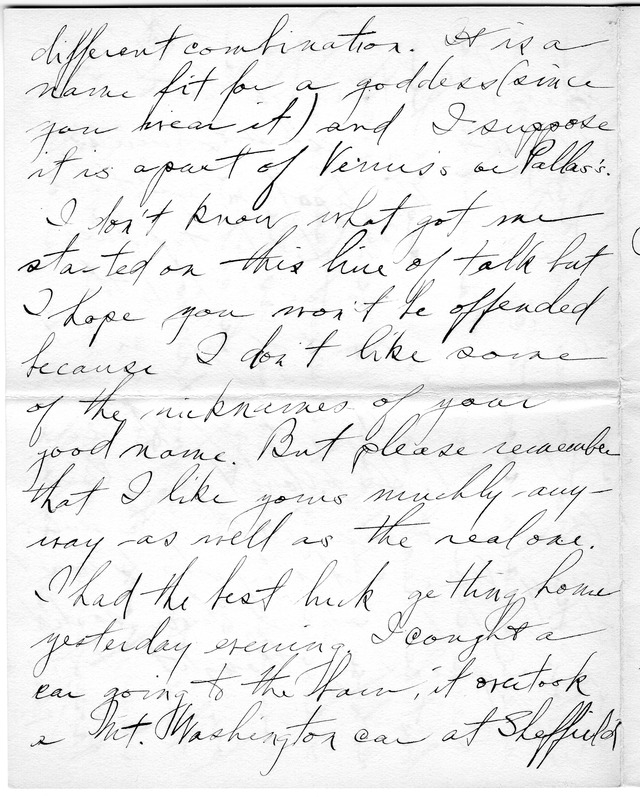 different combination. It is a
name fit for a goddess (since
you wear it) and I suppose
it is apart of Venus's or Pallas's.
I don't know what got me
started on this line of talk but
I hope you won't be offended
because I don't like some
of the nicknames of your
good name. But please remember
that I like yours muchly-any-
way-as well as the real one.
I had the best luck getting home
yesterday evening. I caught a
car going to the barn, it overtook
a Mt. Washington car at Sheffield